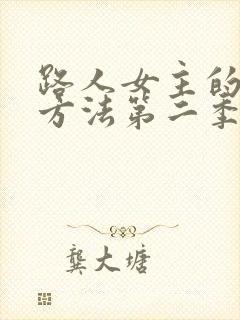 路人女主的
方法第二季
龚大塘